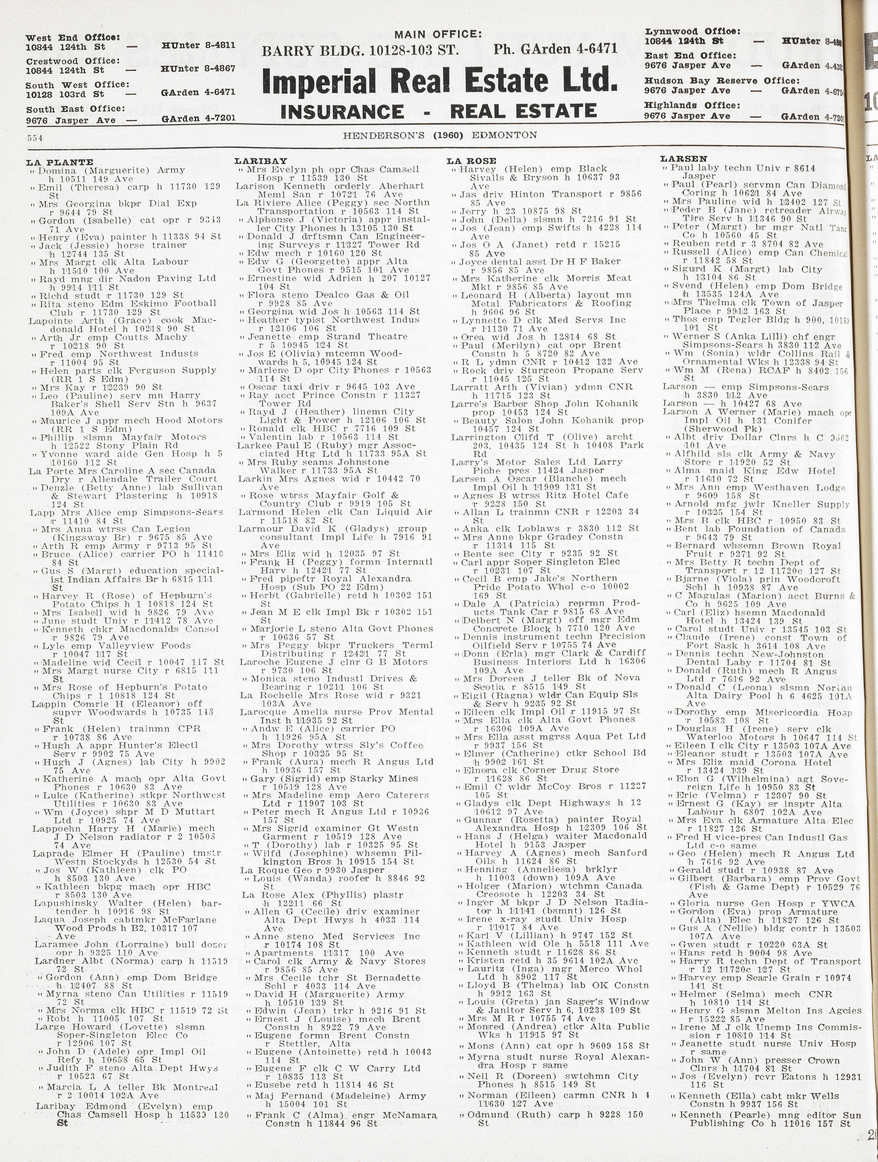 West End Office:
10844 124th St — HUnter 8-4811
Crestwood Office:
10844 124th St — HUnter 8-4867
South West Office:
10128 103rd St — GArden 4-6471
South East Office:
9676 Jasper Ave — GArden 4-7201
MAIN OFFICE:
BARRY BLDG. 10128-103 ST. Ph. GArden 4-6471
Imperial Real Estate Ltd.
INSURANCE - REAL ESTATE
Lynnwood Office:
10844 124th St — HUnter
East End Office:
9676 Jasper Ave — GArden
Hudson Bay Reserve Office:
9676 Jasper Ave — GArden
Highlands Office:
9676 Jasper Ave — GArden
554
HENDERSON'S (1960) EDMONTON
LA PLANTE
" Domina (Marguerite) Army
h 10511 149 Ave
" Emil (Theresa) carp h 11730 129
St
" Mrs Georgina bkpr Dial Exp
r 9644 79 St
" Gordon (Isabelle) cat opr r 9343
71 Ave
" Henry (Eva) painter h 11338 94 St
" Jack (Jessie) horse trainer
h 12744 135 St
" Mrs Margt clk Alta Labour
h 11510 100 Ave
" Rayd mng dir Nadon Paving Ltd
h 9914 111 St
" Richd studt r 11730 129 St
" Rita steno Edm Eskimo Football
Club r 11730 129 St
Lapointe Arth (Grace) cook Mac-
donald Hotel h 10218 90 St
" Arth Jr emp Coutts Machy
r 10218 90 St
" Fred emp Northwest Industs
r 11004 95 St
" Helen parts clk Ferguson Supply
(RR 1 S Edm)
" Mrs Kay r 12239 90 St
" Leo (Pauline) serv mn Harry
Baker's Shell Serv Stn h 9637
109A Ave
" Maurice J appr mech Hood Motors
(RR 1 S Edm)
" Phillip slsmn Mayfair Motors
h 12522 Stony Plain Rd
" Yvonne ward aide Gen Hosp h 5
10160 112 St
La Porte Mrs Caroline A sec Canada
Dry r Allendale Trailer Court
" Denzle (Betty Anne) lab Sullivan
& Stewart Plastering h 10918
124 St
Lapp Mrs Alice emp Simpsons-Sears
r 11410 84 St
" Mrs Anna wtrss Can Legion
(Kingsway Br) r 9675 85 Ave
" Arth R emp Army r 9713 95 St
" Bruce (Alice) carrier PO h 11410
84 St
" Gus S (Margt) education special-
ist Indian Affairs Br h 6815 111
St
" Harvey R (Rose) of Hepburn's
Potato Chips h 1 10818 124 St
" Mrs Isabell wid h 9826 79 Ave
" June studt Univ r 11412 78 Ave
" Kenneth chkr Macdonalds Consol
r 9826 79 Ave
" Lyle emp Valleyview Foods
r 10047 117 St
" Madeline wid Cecil r 10047 117 St
" Mrs Margt nurse City r 6815 111
St
" Mrs Rose of Hepburn's Potato
Chips r 1 10818 124 St
Lappin Comrie H (Eleanor) off
supvr Woodwards h 10735 143
St
" Frank (Helen) trainmn CPR
r 10738 86 Ave
" Hugh A appr Hunter's Electl
Serv r 9902 75 Ave
" Hugh J (Agnes) lab City h 9902
75 Ave
" Katherine A mach opr Alta Govt
Phones r 10630 83 Ave
" Luke (Katherine) stkpr Northwest
Utilities r 10630 83 Ave
" Wm (Joyce) shpr M D Muttart
Ltd r 10925 74 Ave
Lappoehn Harry H (Marie) mech
J D Nelson radiator r 2 10508
74 Ave
Laprade Elmer H (Pauline) tmstr
Westn Stockyds h 12530 54 St
" Jos W (Kathleen) clk PO
h 8503 130 Ave
" Kathleen bkpg mach opr HBC
r 8503 130 Ave
Lapushinsky Walter (Helen) bar-
tender h 10916 98 St
Laqua Joseph cabtmkr McFarlane
Wood Prods h B2, 10317 107
Ave
Laramee John (Lorraine) bull dozer
opr h 9325 110 Ave
Lardner Albt (Norma) carp h 11519
72 St
" Gordon (Ann) emp Dom Bridge
h 12407 88 St
" Myrna steno Can Utilities r 11519
72 St
" Mrs Norma clk HBC r 11519 72 St
" Robt h 11005 107 St
Large Howard (Lovette) slsmn
Soper-Singleton Elec Co
r 12906 107 St
" John D (Adele) opr Impl Oil
Refy h 10658 65 St
" Judith F steno Alta Dept Hwys
r 10523 67 St
" Marcia L A teller Bk Montreal
r 2 10014 102A Ave
Laribay Edmond (Evelyn) emp
Chas Camsell Hosp h 11539 130
St
LARIBAY
" Mrs Evelyn ph opr Chas Camsell
Hosp r 11539 130 St
Larison Kenneth orderly Aberhart
Meml San r 10721 76 Ave
La Riviere Alice (Peggy) sec Northn
Transportation r 10563 114 St
" Alphonse J (Victoria) appr instal-
ler City Phones h 13105 130 St
" Donald J drftsmn Can Engineer-
ing Surveys r 11327 Tower Rd
" Edw mech r 10160 120 St
" Edw G (Georgette) appr Alta
Govt Phones r 9515 101 Ave
" Ernestine wid Adrien h 207 10127
104 St
" Flora steno Dealco Gas & Oil
r 9928 85 Ave
" Georgina wid Jos h 10563 114 St
" Heather typist Northwest Indus
r 12106 106 St
" Jeanette emp Strand Theatre
r 5 10945 124 St
" Jos E (Olivia) mtcemn Wood-
wards h 5, 10945 124 St
" Marlene D opr City Phones r 10563
114 St
" Oscar taxi driv r 9645 103 Ave
" Ray acct Prince Constn r 11327
Tower Rd
" Rayd J (Heather) linemn City
Light & Power h 12106 106 St
" Ronald clk HBC r 7716 109 St
" Valentin lab r 10563 114 St
Larkee Paul E (Ruby) mgr Assoc-
iated Htg Ltd h 11733 95A St
" Mrs Ruby seams Johnstone
Walker r 11733 95A St
Larkin Mrs Agnes wid r 10442 70
Ave
" Rose wtrss Mayfair Golf &
Country Club r 9919 105 St
Larmond Helen clk Can Liquid Air
r 11518 82 St
Larmour David K (Gladys) group
consultant Impl Life h 7916 91
Ave
" Mrs Eliz wid h 12035 97 St
" Frank H (Peggy) formn Internatl
Harv h 12421 77 St
" Fred pipeftr Royal Alexandra
Hosp (Sub PO 22 Edm)
" Herbt (Gabrielle) retd h 10302 151
St
" Jean M E clk Impl Bk r 10302 151
St
" Marjorie L steno Alta Govt Phones
r 10636 57 St
" Mrs Peggy bkpr Truckers Terml
Distributing r 12421 77
Laroche Eugene J clnr G B Motors
r 9730 106 St
" Monica steno Industl Drives &
Bearing r 10211 106 St
La Rochelle Mrs Rose wid r 9321
103A Ave
Larocque Amelia nurse Prov Mental
Inst h 11935 92 St
" Andw E (Alice) carrier PO
h 11926 95A St
" Mrs Dorothy wtrss Sly's Coffee
Shop r 10325 95 St
" Frank (Aura) mech R Angus Ltd
h 10936 157 St
" Gary (Sigrid) emp Starky Mines
r 10519 128 Ave
" Mrs Madeline emp Aero Caterers
Ltd r 11907 103 St
" Peter mech R Angus Ltd r 10936
157 St
" Mrs Sigrid examiner Gt Westn
Garment r 10519 128 Ave
" T (Dorothy) lab r 10325 95 St
" Wilfd (Josephine) whsemn Pil-
kington Bros h 10915 154 St
La Roque Geo r 9930 Jasper
" Louis (Wanda) roofer h 8846 92
St
La Rose Alex (Phyllis) plastr
h 12211 66 St
" Allen G (Cecile) driv examiner
Alta Dept Hwys h 4033 114
Ave
" Anne steno Med Services Inc
r 10174 108 St
" Apartments 11317 100 Ave
" Carol clk Army & Navy Stores
r 9856 85 Ave
" Mrs Cecile tchr St Bernadette
Schl r 4033 114 Ave
" David H (Marguerite) Army
h 10510 139 St
" Edwin (Jean) trkr h 9216 91 St
" Ernest J (Louise) mech Brent
Constn h 8922 79 Ave
" Eugene formn Brent Constn
r Stettler, Alta
" Eugene (Antoinette) retd h 10043
114 St
" Eugene F clk C W Carry Ltd
r 10835 113 St
" Eusebe retd h 11814 46 St
" Maj Fernand (Madeleine) Army
h 15004 101 St
" Frank C (Alma) engr McNamara
Constn h 11844 96 St
LA ROSE
" Harvey (Helen) emp Black
Sivalls & Bryson h 10637 93
Ave
" Jas driv Hinton Transport r 9856
85 Ave
" Jerry h 23 10875 98 St
" John (Della) slsmn h 7216 91 St
" Jos (Jean) emp Swifts h 4228 114
Ave
" Jos O A (Janet) retd r 15215
85 Ave
" Joyce dental asst Dr H F Baker
r 9856 85 Ave
" Mrs Katherine clk Morris Meat
Mkt r 9856 85 Ave
" Leonard H (Alberta) layout mn
Metal Fabricators & Roofing
h 9606 96 St
" Lynnette D clk Med Servs Inc
r 11130 71 Ave
" Orea wid Jos h 12814 68 St
" Paul (Merilyn) cat opr Brent
Constn h 5 8720 82 Ave
" R L ydmn CNR r 10412 132 Ave
" Rock driv Sturgeon Propane Serv
r 11045 125 St
Larratt Arth (Vivian) ydmn CNR
h 11715 123 St
Larre's Barber Shop John Kohanik
prop 10453 124 St
" Beauty Salon John Kohanik prop
10457 124 St
Larrington Clifd T (Olive) archt
203, 10435 124 St h 10408 Park
Rd
Larry's Motor Sales Ltd Larry
Piche pres 11424 Jasper
Larsen A Oscar (Blanche) mech
Impl Oil h 11909 131 St
" Agnes B wtrss Ritz Hotel Cafe
r 9228 150 St
" Allan L trainmn CNR r 12203 34
St
" Anka clk Loblaws r 3830 112 St
" Mrs Anne bkpr Gradey Constn
r 11314 115 St
" Bente sec City r 9235 92 St
" Carl appr Soper Singleton Elec
r 10231 107 St
" Cecil B emp Jake's Northern
Pride Potato Whol c-o 10002
169 St
" Dale A (Patricia) reprmn Prod-
ucts Tank Car r 9815 68 Ave
" Delbert N (Margt) off mgr Edm
Concrete Block h 7710 120 Ave
" Dennis instrument techn Precision
Oilfield Serv r 10755 74 Ave
" Donn (Erla) mgr Clark & Cardiff
Business Interiors Ltd h 16306
109A Ave
" Mrs Doreen J teller Bk of Nova
Scotia r 8515 149 St
" Eigil (Ragna) wldr Can Equip Sls
& Serv h 9235 92 St
" Eileen clk Impl Oil r 11915 97 St
" Mrs Ella clk Alta Govt Phones
r 16306 109A Ave
" Mrs Ella asst mgress Aqua Pet Ltd
r 9937 156 St
" Elmer (Catherine) ctkr School Bd
h 9902 161 St
" Elnora clk Corner Drug Store
r 11628 86 St
" Emil C wldr McCoy Bros r 11227
105 St
" Gladys clk Dept Highways h 12
10612 97 Ave
" Gunnar (Rosetta) painter Royal
Alexandra Hosp h 12309 106 St
" Hans J (Helga) waiter Macdonald
Hotel h 9153 Jasper
" Harvey A (Agnes) mech Sanford
Oils h 11624 86 St
" Henning (Anneliesa) brklyr
h 11003 (down) 109A Ave
" Holger (Marion) wtchmn Canada
Creosote h 12203 34 St
" Inger M bkpr J D Nelson Radia-
tor h 11141 (bsmnt) 126 St
" Irene x-ray studt Univ Hosp
r 11017 84 Ave
" Karl W (Lillian) h 9747 152 St
" Kathleen wid Ole h 5518 111 Ave
" Kenneth studt r 11628 86 St
" Kristen retd h 35 9614 102A Ave
" Lauritz (Inga) mgr Merco Whol
Ltd h 8902 117 St
" Lloyd B (Thelma) lab OK Constn
h 9912 163 St
" Louis (Greta) jan Sager's Window
& Janitor Serv h 6, 10238 109 St
" Mrs M R r 10755 74 Ave
" Monred (Andrea) ctkr Alta Public
Wks h 11915 97 St
" Mons (Ann) cat opr h 9609 158 St
" Myrna studt nurse Royal Alexan-
dra Hosp r same
" Neil R (Doreen) swtchmn City
Phones h 8515 149 St
" Norman (Eileen) carmn CNR h 4
11630 127 Ave
" Odmund (Ruth) carp h 9228 150
St
LARSEN
" Paul laby techn Univ r 8614
Jasper
" Paul (Pearl) servmn Can Diamond
Coring h 10621 84 Ave
" Mrs Pauline wid h 12402 127 St
" Peder B (Jane) retreader Airway
Tire Serv h 11346 90 St
" Peter (Margt) br mgr Natl Tank
Co h 10560 45 St
" Reuben retd r 3 8704 82 Ave
" Russell (Alice) emp Can Chemical
r 11842 58 St
" Sigurd K (Margt) lab City
h 13104 86 St
" Svend (Helen) emp Dom Bridge
h 13535 124A Ave
" Mrs Thelma clk Town of Jasper
Place r 9912 163 St
" Thos emp Tegler Bldg h 900,
101 St
" Werner S (Anka Lilli) chf engr
Simpsons-Sears h 3830 112 Ave
" Wm (Sonia) wldr Collins Rail &
Ornamental Wks h 12338 94 St
" Wm M (Rena) RCAF h 8402 156
St
Larson — emp Simpsons-Sears
h 3830 112 Ave
Larson — h 10427 68 Ave
Larson A Werner (Marie) mach opr
Impl Oil h 131 Conifer
(Sherwood Pk)
" Albt driv Dollar Clnrs h C 9562
101 Ave
" Alfhild sls clk Army & Navy
Store r 11920 52 St
" Alma maid King Edw Hotel
r 11610 72 St
" Mrs Ann emp Westhaven Lodge
r 9609 158 St
" Arnold mfg jwlr Kneller Supply
r 10325 154 St
" Mrs B clk HBC r 10950 83 St
" Bent lab Foundation of Canada
r 9643 79 St
" Bernard whsemn Brown Royal
Fruit r 9271 92 St
" Mrs Betty R techn Dept of
Transport r 12 11720c 127 St
" Bjarne (Viola) prin Woodcroft
Schl h 10938 87 Ave
" C Magulas (Marion) acct Burns &
Co h 9625 109 Ave
" Carl (Eliz) hsemn Macdonald
Hotel h 13424 139 St
" Carol studt Univ r 13545 103 St
" Claude (Irene) const Town of
Fort Sask h 3614 108 Ave
" Dennis techn New-Johnston
Dental Laby r 11704 81 St
" Donald (Ruth) mech R Angus
Ltd r 7616 92 Ave
" Donald C (Leona) slsmn Norian
Alta Dairy Pool h 6 4625 101A
Ave
" Dorothy emp Misericordia Hosp
r 10583 108 St
" Douglas H (Irene) serv clk
Waterloo Motors h 10647 114 St
" Eileen I clk City r 13503 107A Ave
" Eleanor studt r 13503 107A Ave
" Mrs Eliz maid Corona Hotel
r 13424 139 St
" Elon G (Wilhelmina) agt Sove-
reign Life h 10950 83 St
" Eric (Velma) r 12307 90 St
" Ernest G (Kay) sr insptr Alta
Labour h 6807 102A Ave
" Mrs Eva clk Armature Alta Elec
r 11827 126 St
" Fred H vice-pres Can Industl Gas
Ltd c-o same
" Geo (Helen) mech R Angus Ltd
h 7616 92 Ave
" Gerald studt r 10938 87 Ave
" Gilbert (Barbara) emp Prov Govt
(Fish & Game Dept) r 10529 76
Ave
" Gloria nurse Gen Hosp r YWCA
" Gordon (Eva) prop Armature
(Alta) Elec h 11827 126 St
" Gus A (Nellie) bldg contr h 13503
107A Ave
" Gwen studt r 10220 63A St
" Hans retd h 9004 98 Ave
" Harry R techn Dept of Transport
r 12 11720c 127 St
" Harvey emp Searle Grain r 10974
141 St
" Helmer (Selma) mech CNR
h 10810 114 St
" Henry G slsmn Melton Ins Agcies
r 15222 85 Ave
" Irene M J clk Unemp Ins Commis-
sion r 10810 114 St
" Jeanette studt nurse Univ Hosp
r same
" John W (Ann) presser Crown
Clnrs h 11704 81 St
" Jos (Evelyn) rcvr Eatons h 12931
116 St
" Kenneth (Ella) cabt mkr Wells
Constn h 9937 156 St
" Kenneth (Pearle) mng editor Sun
Publishing Co h 11016 157 St